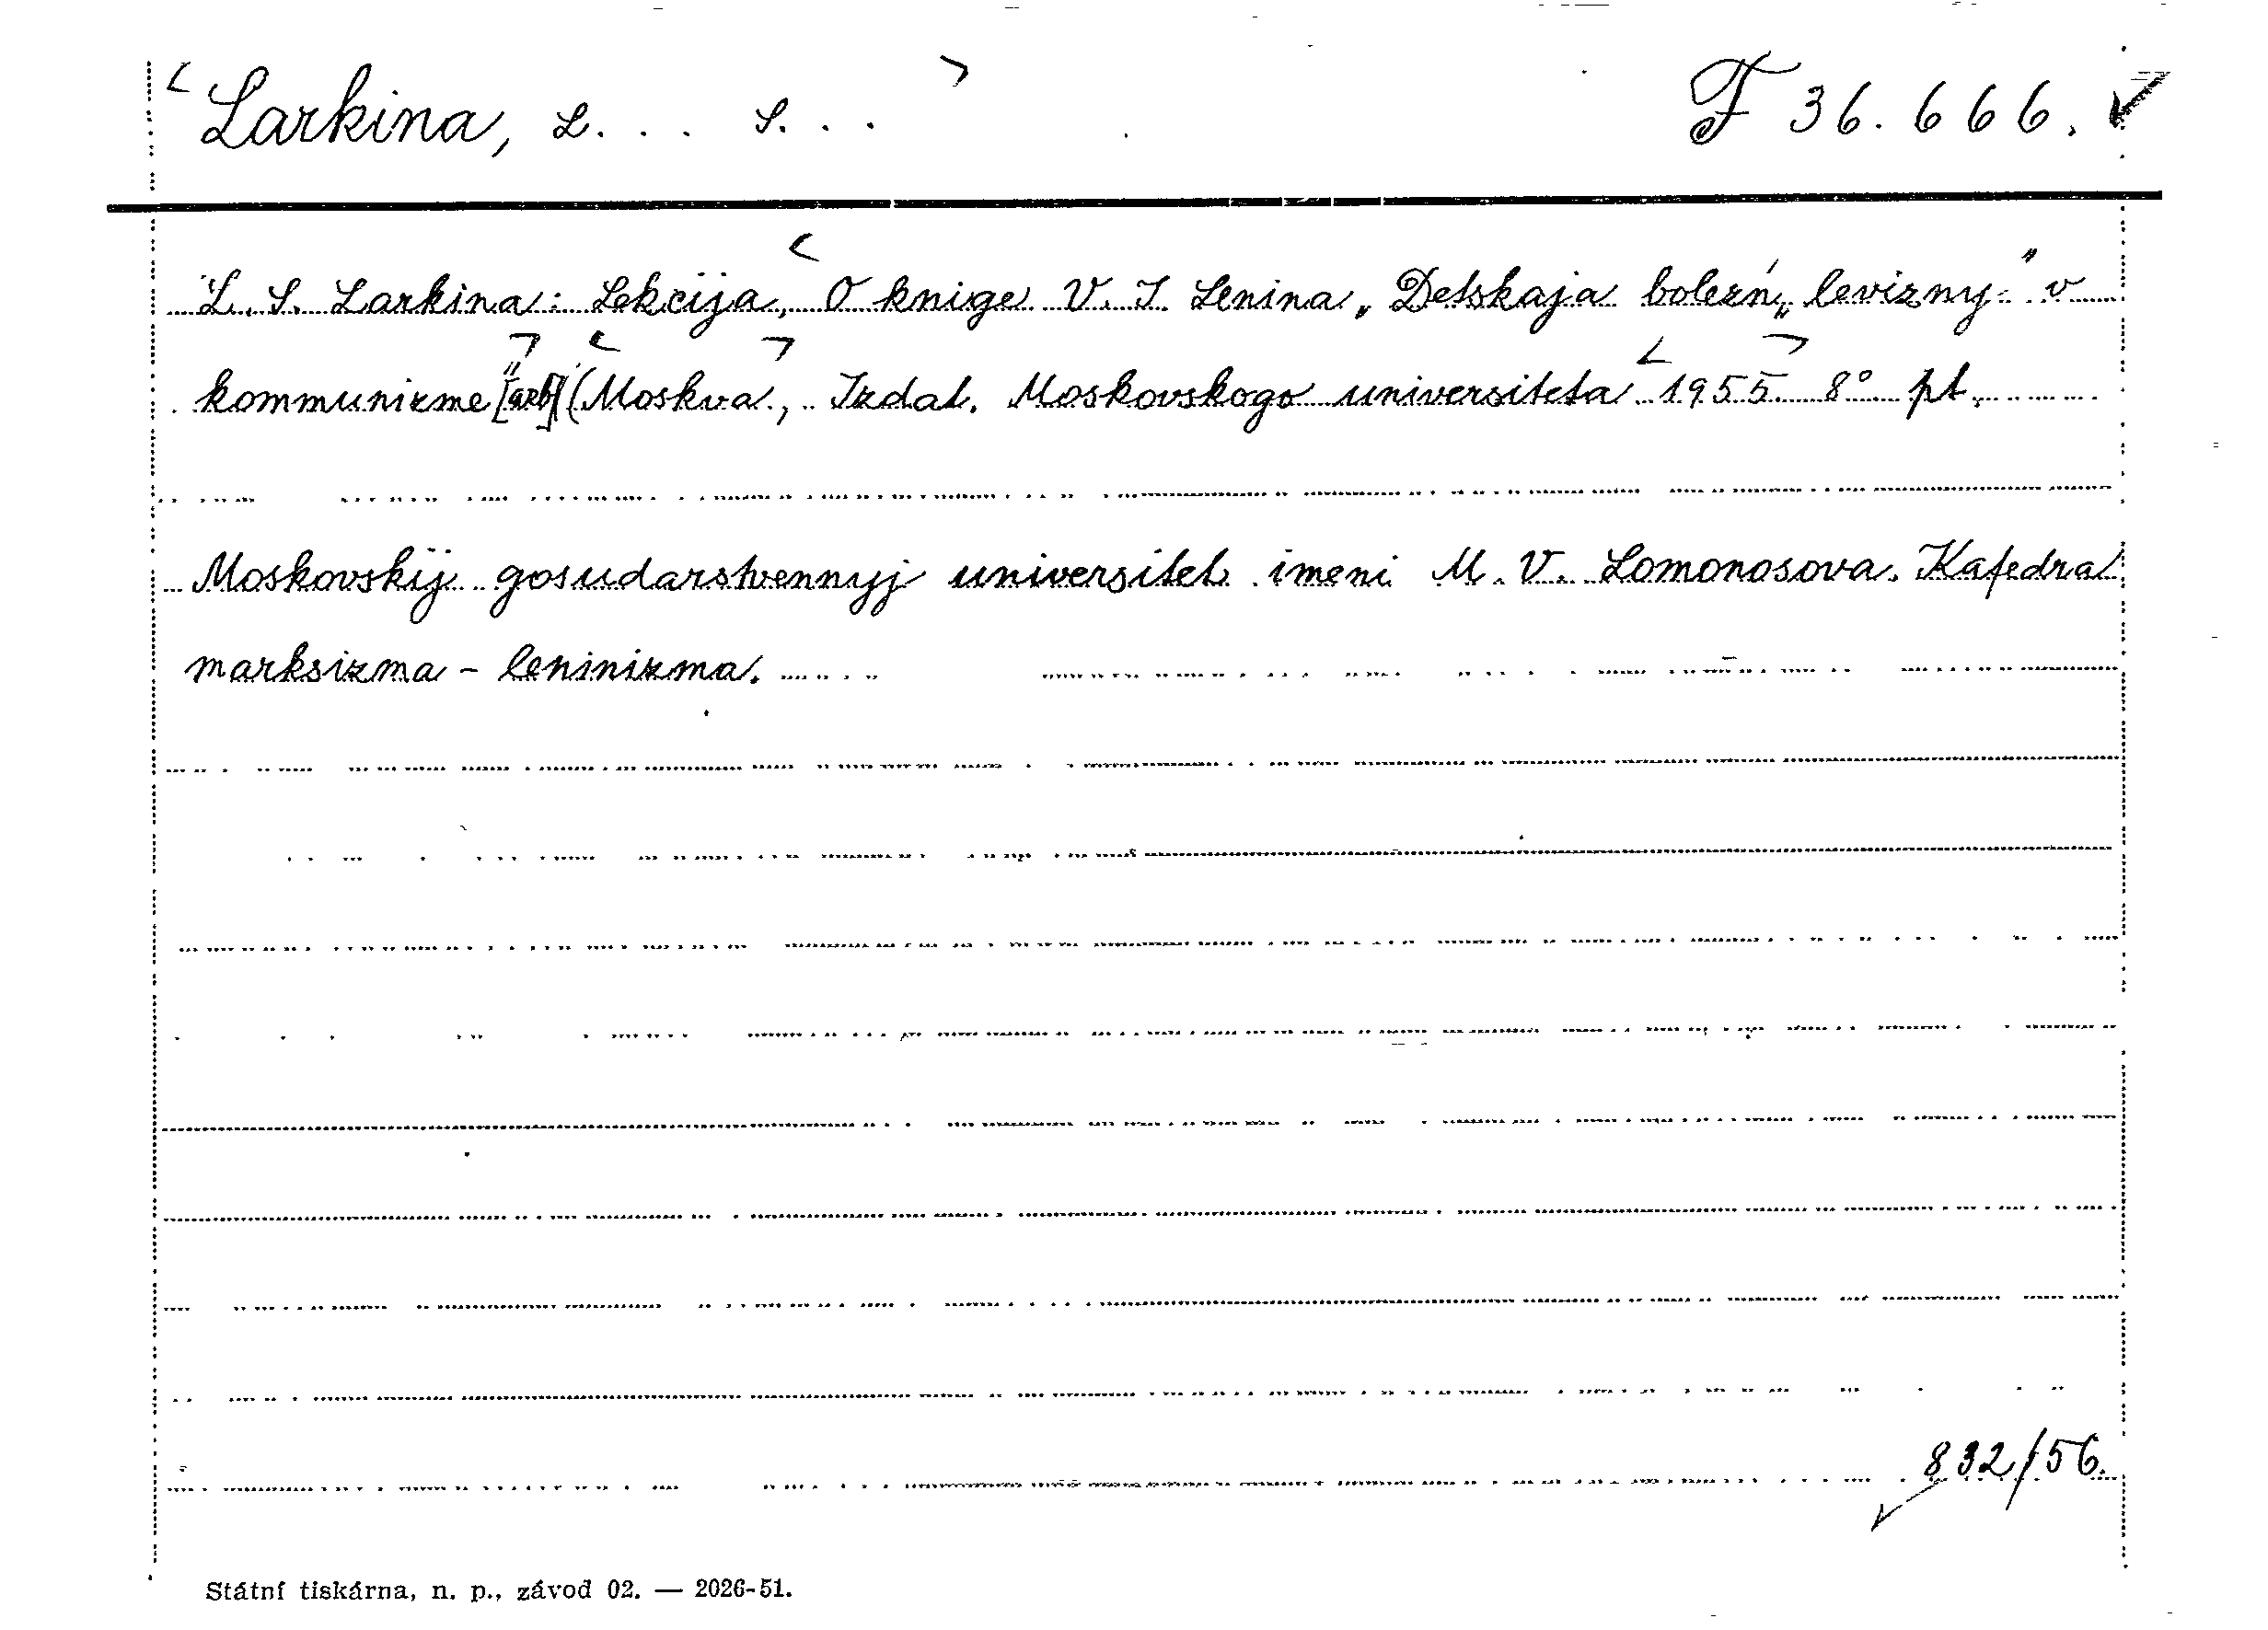 Larkina, L... S... F 36.666.
L. S. Larkina: Lekcija, O knige V. I. Lenina „Detskaja bolezń „levizny" v
kommunizme" [azb] (Moskva, Izdat. Moskovskogo universiteta 1955 8° pt.
Moskovskij gosudarstvennyj universitet imeni M. V. Lomonosova. Kafedra
marksizma - leninizma.
832/56.
Státní tiskárna, n. p., závod 02. — 2026-51.